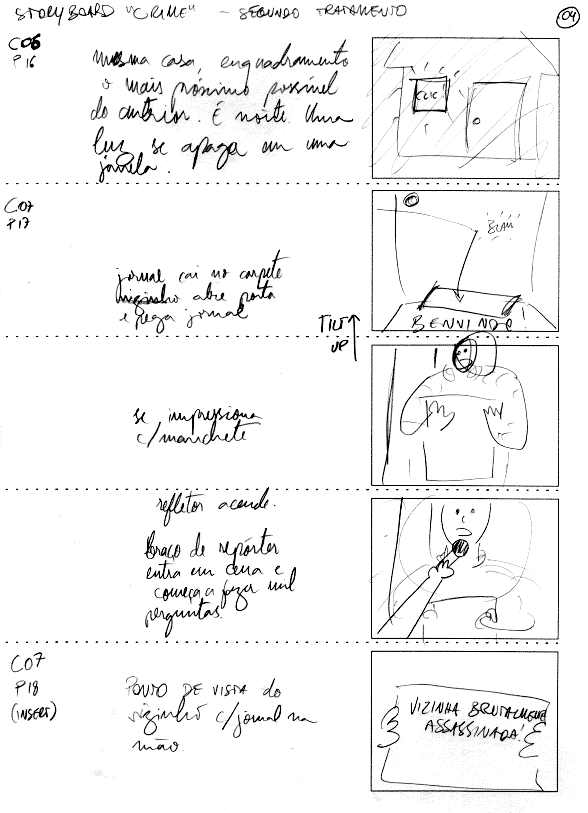 STORYBOARD "CRIME" - SEGUNDO TRATAMENTO
04
C06
P16
mesma casa, enquadramento
o mais próximo possível
do anterior. É noite. Uma
luz se apaga em uma
janela.
CLIC!
C07
P17
jornal cai no carpete
vizinho abre porta
e pega jornal
BLAM
BENVINDO
TILT
UP
se impressiona
c/manchete
refletor acende.
Braço de repórter
entra em cena e
começa a fazer mil
perguntas.
C07
P18
(INSERT)
PONTO DE VISTA do
vizinho c/jornal na
mão.
VIZINHA BRUTALMENTE
ASSASSINADA!